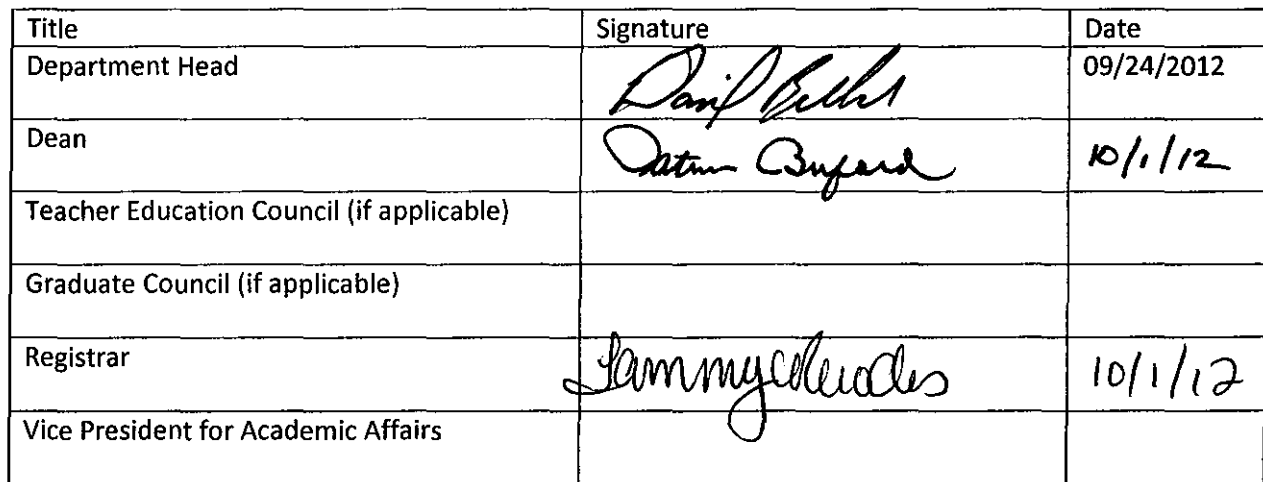 Title Signature Date
Department Head 09/24/2012
Dean 10/1/12
Teacher Education Council (if applicable)
Graduate Council (if applicable)
Registrar Tammy Rhodes 10/1/12
Vice President for Academic Affairs